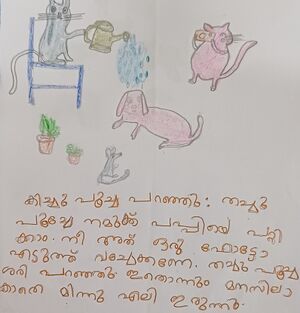 കിച്ചു പൂച്ച പറഞ്ഞു: തച്ചു
പൂച്ചേ നമുക്ക് പപ്പിയെ പറ്റി
ക്കാം. നീ അത് ഒരു ഫോട്ടോ
എടുത്ത് വച്ചേക്കണേ. തച്ചു പൂച്ച
ശരി പറഞ്ഞു. ഇതൊന്നും മനസിലാ
കാതെ മിന്നു എലി ഇരുന്നു.